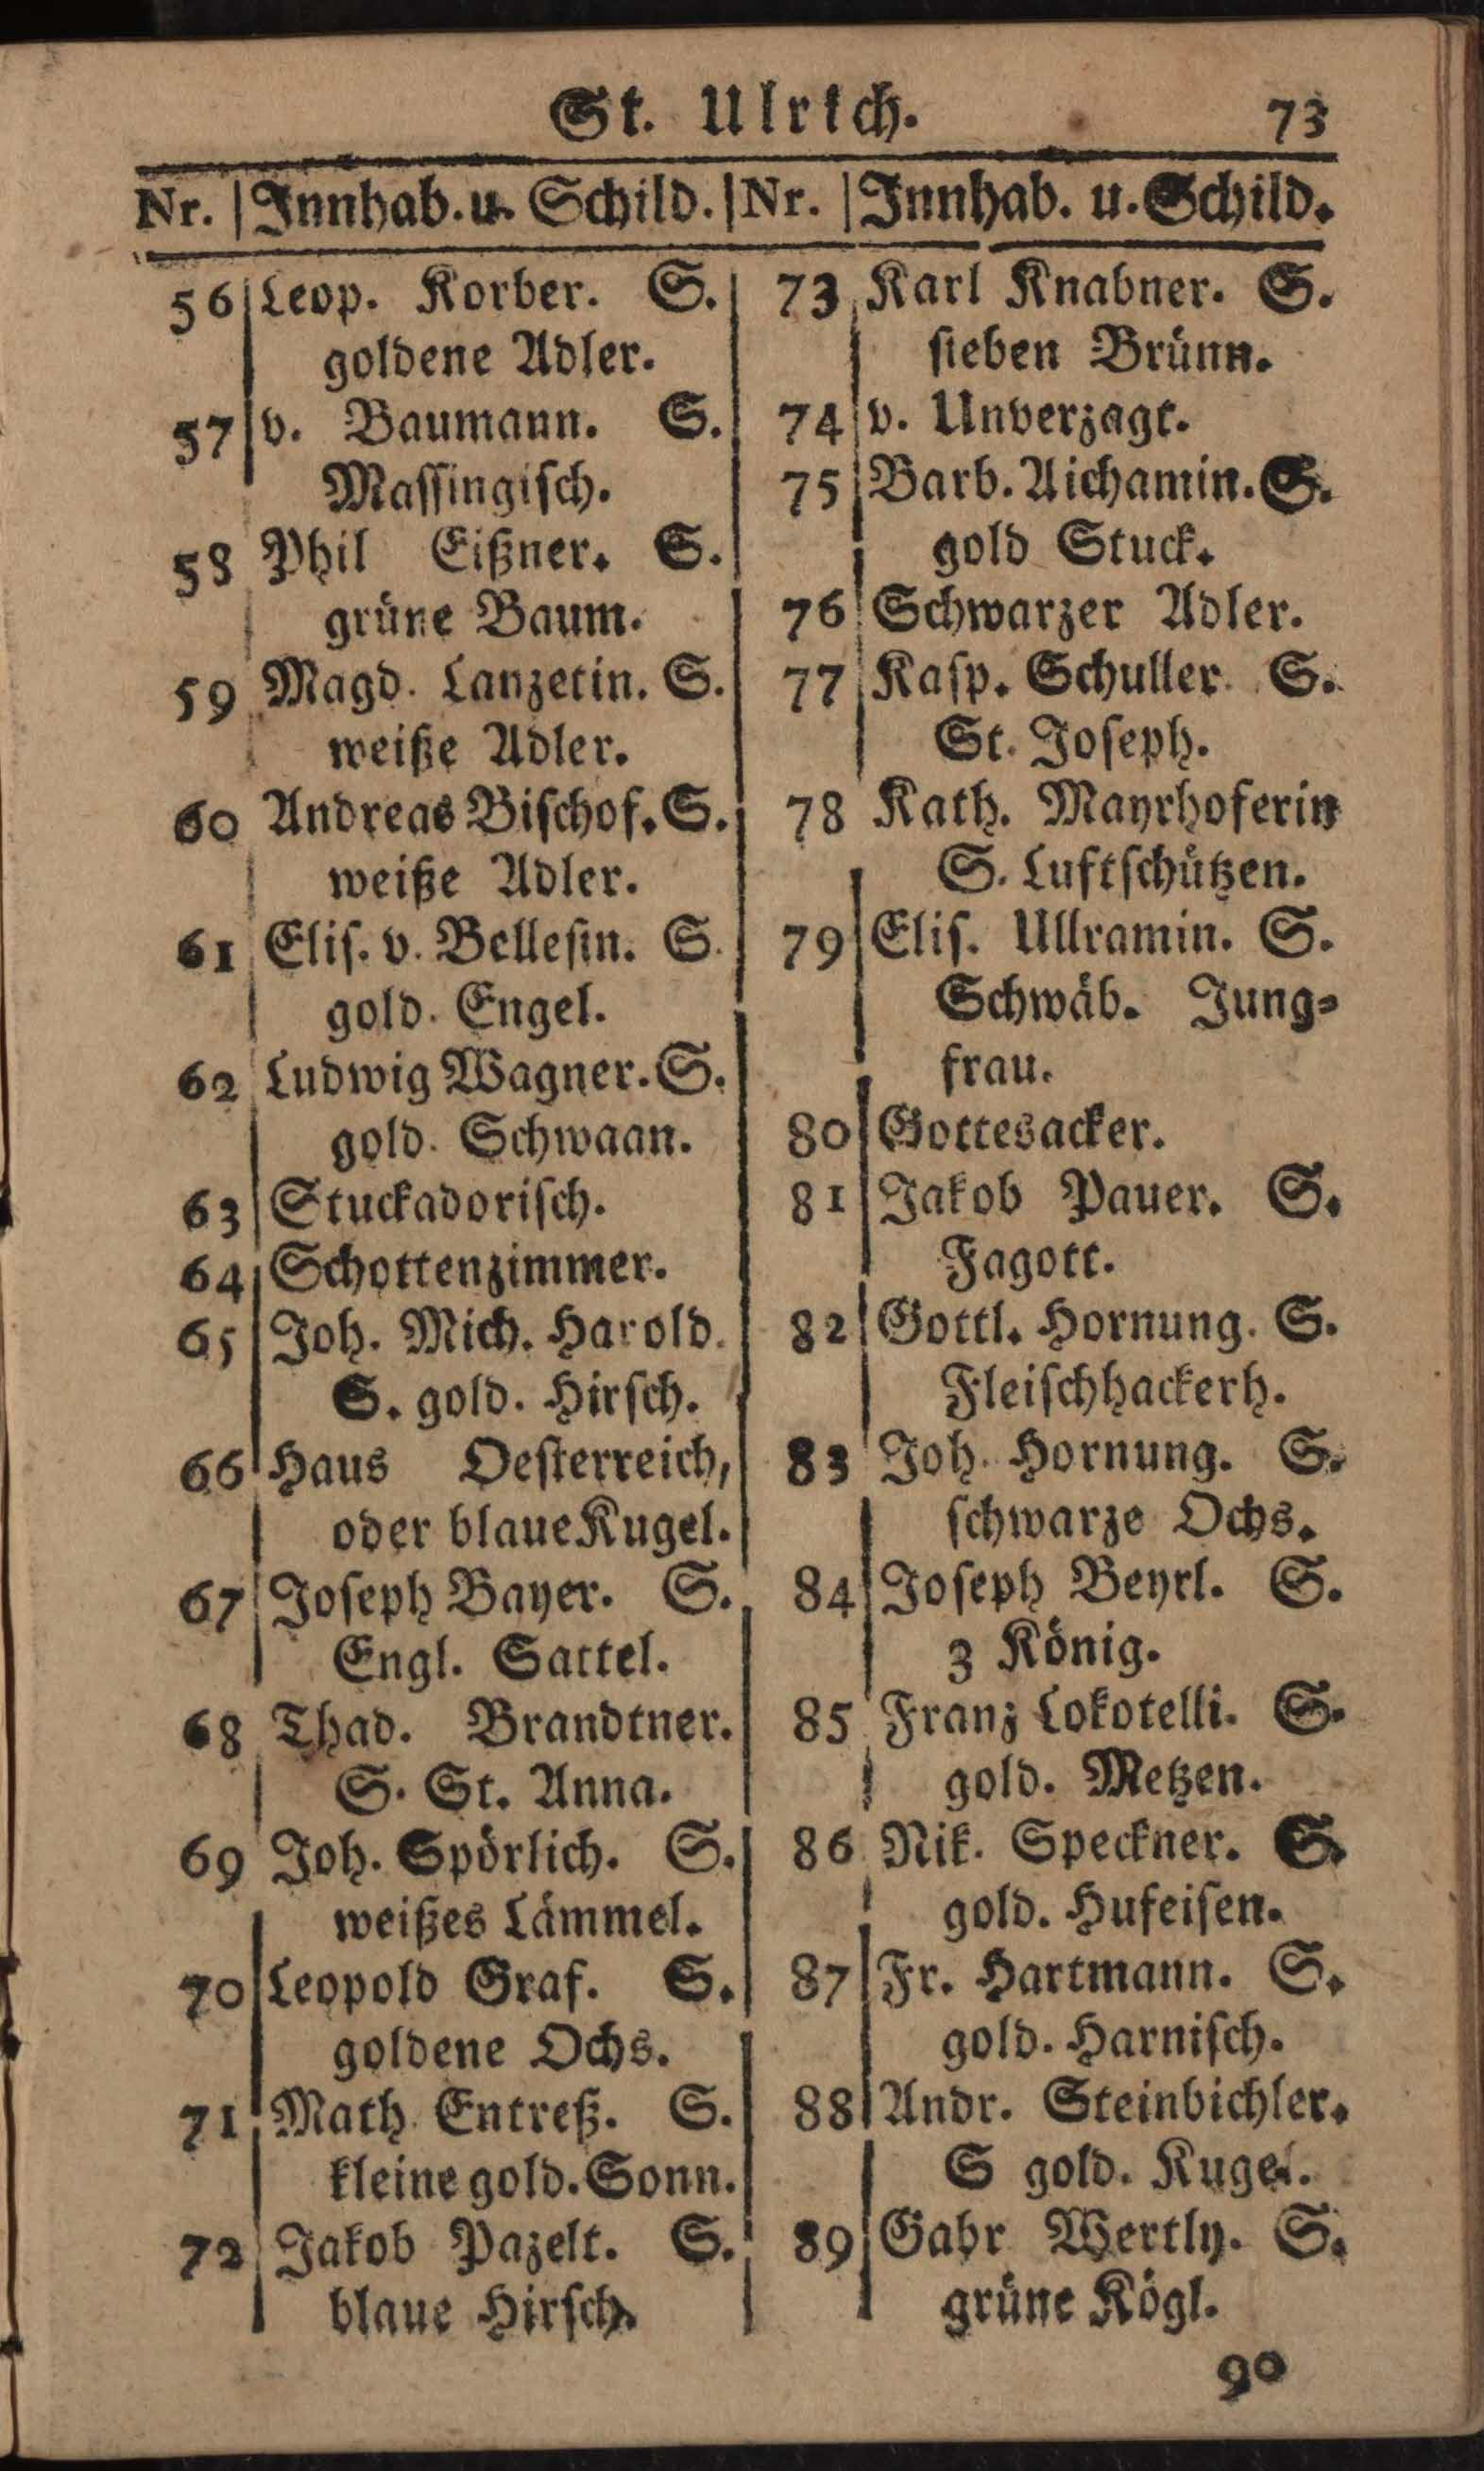 St. Ulrich.
73
Nr. | Innhab. u. Schild. | Nr. | Innhab. u. Schild.
56 Leop. Korber. S.
goldene Adler.
57 v. Baumann. S.
Massingisch.
58 Phil Eißner. S.
grüne Baum.
59 Magd. Lanzetin. S.
weiße Adler.
60 Andreas Bischof. S.
weiße Adler.
61 Elis. v. Bellesin. S.
gold. Engel.
62 Ludwig Wagner. S.
gold. Schwaan.
63 Stuckadorisch.
64 Schottenzimmer.
65 Joh. Mich. Harold.
S. gold. Hirsch.
66 Haus Oesterreich,
oder blaue Kugel.
67 Joseph Bayer. S.
Engl. Sattel.
68 Thad. Brandtner.
S. St. Anna.
69 Joh. Spörlich. S.
weißes Lämmel.
70 Leopold Graf. S.
goldene Ochs.
71 Math. Entreß. S.
kleine gold. Sonn.
72 Jakob Pazelt. S.
blaue Hirsch.
73 Karl Knabner. S.
sieben Brünn.
74 v. Unverzagt.
75 Barb. Aichamin. S.
gold Stuck.
76 Schwarzer Adler.
77 Kasp. Schuller. S.
St. Joseph.
78 Kath. Mayrhoferin
S. Luftschützen.
79 Elis. Ullramin. S.
Schwäb. Jung-
frau.
80 Gottesacker.
81 Jakob Pauer. S.
Fagott.
82 Gottl. Hornung. S.
Fleischhackerh.
83 Joh. Hornung. S.
schwarze Ochs.
84 Joseph Beyrl. S.
3 König.
85 Franz Lokotelli. S.
gold. Metzen.
86 Nik. Speckner. S.
gold. Hufeisen.
87 Fr. Hartmann. S.
gold. Harnisch.
88 Andr. Steinbichler.
S gold. Kugel.
89 Gabr Wertly. S.
grüne Kögl.
90